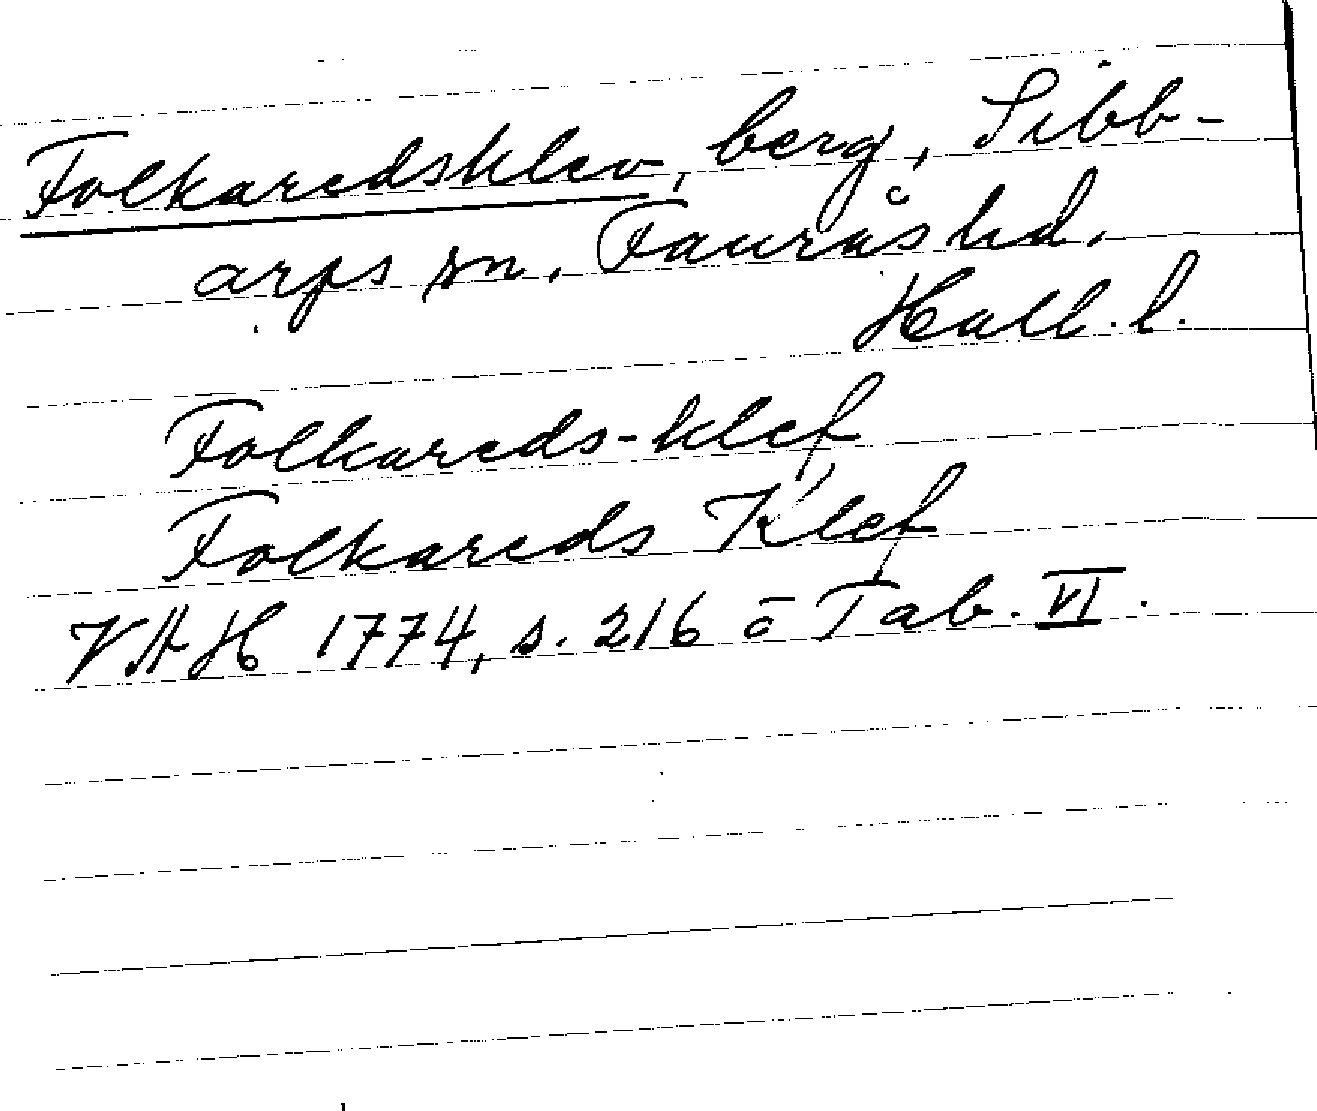 Folkaredsklev, berg, Sibb-
arps sn. Faurås hd.
Hall. l.
Folkareds-klef
Folkareds Klef
VAH 1774, s. 216 o Tab. VI.